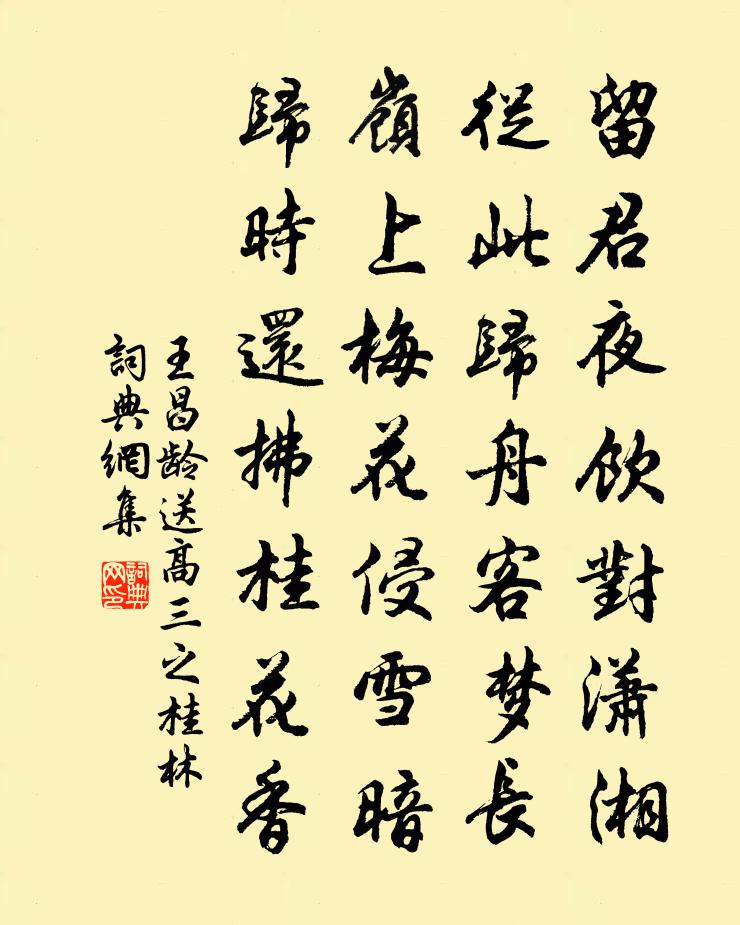 留君夜飲對瀟湘
從此歸舟客梦長
嶺上梅花侵雪暗
歸時還拂桂花香
王昌齡送高三之桂林
詞典網集
詞典网印